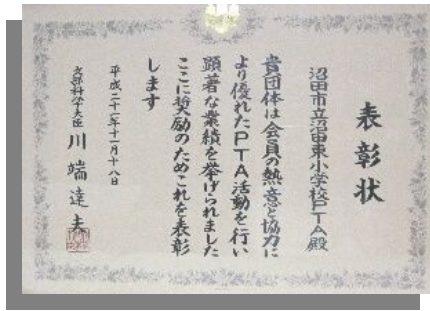 表彰状
沼田市立沼田東小学校PTA殿
貴団体は会員の熱意と協力に
より優れたPTA活動を行い
顕著な業績を挙げられました
ここに奨励のためこれを表彰
します
平成二十二年十一月十八日
文部科学大臣 川端達夫